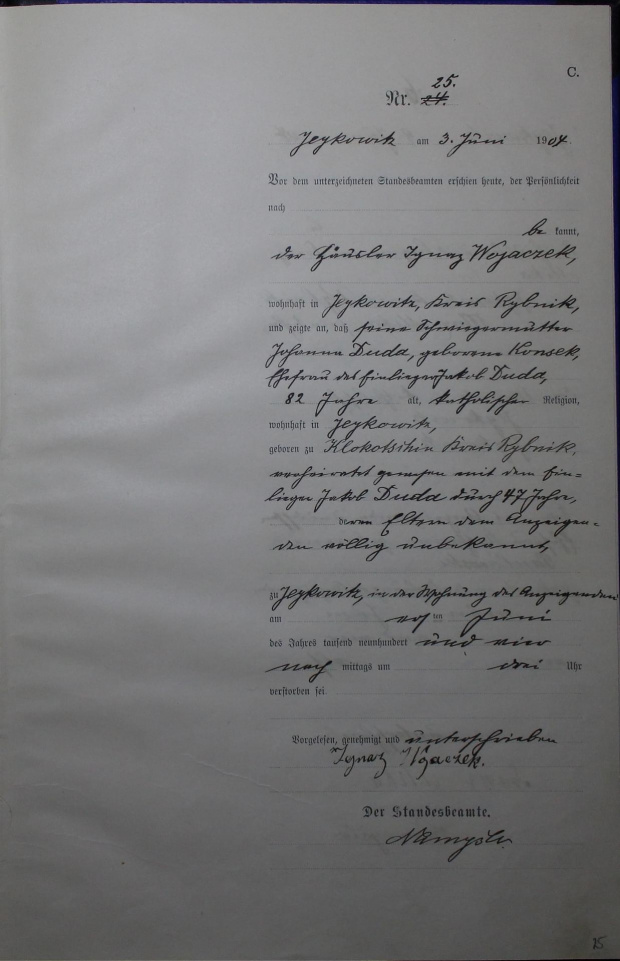 C.
25.
Nr. 24.
Jeykowitz am 3. Juni 1904.
Vor dem unterzeichneten Standesbeamten erschien heute, der Persönlichkeit
nach
be kannt,
der Häusler Ignaz Wojaczek,
wohnhaft in Jeykowitz, Kreis Rybnik,
und zeigte an, daß seine Schwiegermutter
Johanna Duda, geborene Konsek,
Ehefrau des Einliegers Jakob Duda,
82 Jahre alt, katholischer Religion,
wohnhaft in Jeykowitz,
geboren zu Klokotschin Kreis Rybnik,
verheiratet gewesen mit dem Ein=
lieger Jakob Duda durch 47 Jahre,
deren Eltern dem Anzeigen=
den völlig unbekannt,
zu Jeykowitz, in der Wohnung des Anzeigenden
am ersten Juni
des Jahres tausend neunhundert und vier
nach mittags um drei Uhr
verstorben sei.
Vorgelesen, genehmigt und unterschrieben
Ignaz
Der Standesbeamte.